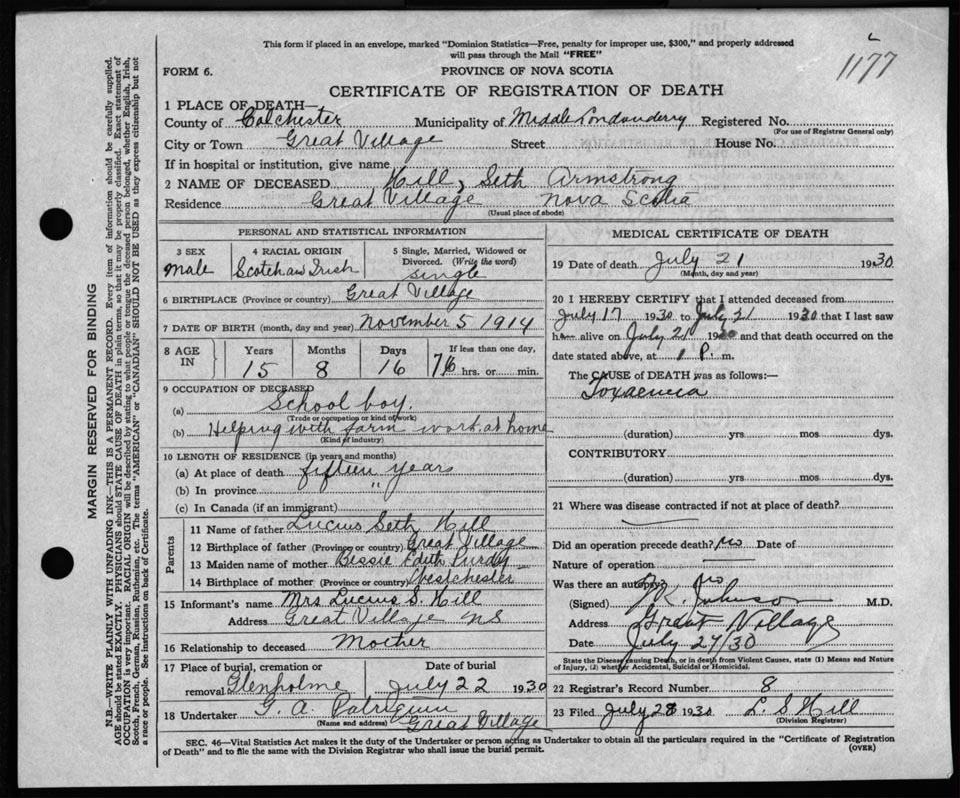 1177
This form if placed in an envelope, marked "Dominion Statistics—Free, penalty for improper use, $300," and properly addressed
will pass through the Mail "FREE"
FORM 6.
PROVINCE OF NOVA SCOTIA
CERTIFICATE OF REGISTRATION OF DEATH
1 PLACE OF DEATH—
County of Colchester Municipality of Middle Londonderry Registered No.
(For use of Registrar General only)
City or Town Great Village Street House No.
If in hospital or institution, give name
2 NAME OF DECEASED Hill, Seth Armstrong
Residence Great Village Nova Scotia
(Usual place of abode)
PERSONAL AND STATISTICAL INFORMATION
3 SEX
Male
4 RACIAL ORIGIN
Scotch and Irish
5 Single, Married, Widowed or
Divorced. (Write the word)
single
6 BIRTHPLACE (Province or country) Great Village
7 DATE OF BIRTH (month, day and year) November 5 1914
8 AGE IN
Years 15
Months 8
Days 16
If less than one day,
hrs. or min.
9 OCCUPATION OF DECEASED
(a) School boy.
(Trade or occupation or kind of work)
(b) Helping with farm work at home
(Kind of industry)
10 LENGTH OF RESIDENCE (in years and months)
(a) At place of death fifteen years
(b) In province "
(c) In Canada (if an immigrant)
Parents
11 Name of father Lucius Seth Hill
12 Birthplace of father (Province or country) Great Village
13 Maiden name of mother Bessie Edith Purdy
14 Birthplace of mother (Province or country) Westchester
15 Informant's name Mrs Lucius S. Hill
Address Great Village NS
16 Relationship to deceased Mother
17 Place of burial, cremation or
removal Glenholme
Date of burial
July 22 1930
18 Undertaker G. A. Patriquin
(Name and address) Great Village
MEDICAL CERTIFICATE OF DEATH
19 Date of death July 21 1930
(Month, day and year)
20 I HEREBY CERTIFY that I attended deceased from
July 17 1930 to July 21 1930 that I last saw
h alive on July 21 1930 and that death occurred on the
date stated above, at 1 P. m.
The CAUSE of DEATH was as follows:—
Toxaemia
(duration) yrs mos dys.
CONTRIBUTORY
(duration) yrs mos dys.
21 Where was disease contracted if not at place of death?
Did an operation precede death? No Date of
Nature of operation
Was there an autopsy No
(Signed) Johnson M.D.
Address Great Village
Date July 27/30
State the Disease causing Death, or in death from Violent Causes, state (1) Means and Nature
of Injury, (2) whether Accidental, Suicidal or Homicidal.
22 Registrar's Record Number 8
23 Filed July 28 1930 L. S Hill
(Division Registrar)
SEC. 46—Vital Statistics Act makes it the duty of the Undertaker or person acting as Undertaker to obtain all the particulars required in the "Certificate of Registration
of Death" and to file the same with the Division Registrar who shall issue the burial permit.
(OVER)
MARGIN RESERVED FOR BINDING
N.B.—WRITE PLAINLY WITH UNFADING INK—THIS IS A PERMANENT RECORD. Every item of information should be carefully supplied.
AGE should be stated EXACTLY. PHYSICIANS should STATE CAUSE OF DEATH in plain terms, so that it may be properly classified. Exact statement of
OCCUPATION is very important. RACIAL ORIGIN will be described by stating to what people or tongue the deceased person belonged, whether English, Irish,
Scotch, French, German, Russian, Ruthenian, etc. The terms "AMERICAN" or "CANADIAN" SHOULD NOT BE USED as they express citizenship but not
a race or people. See instructions on back of Certificate.